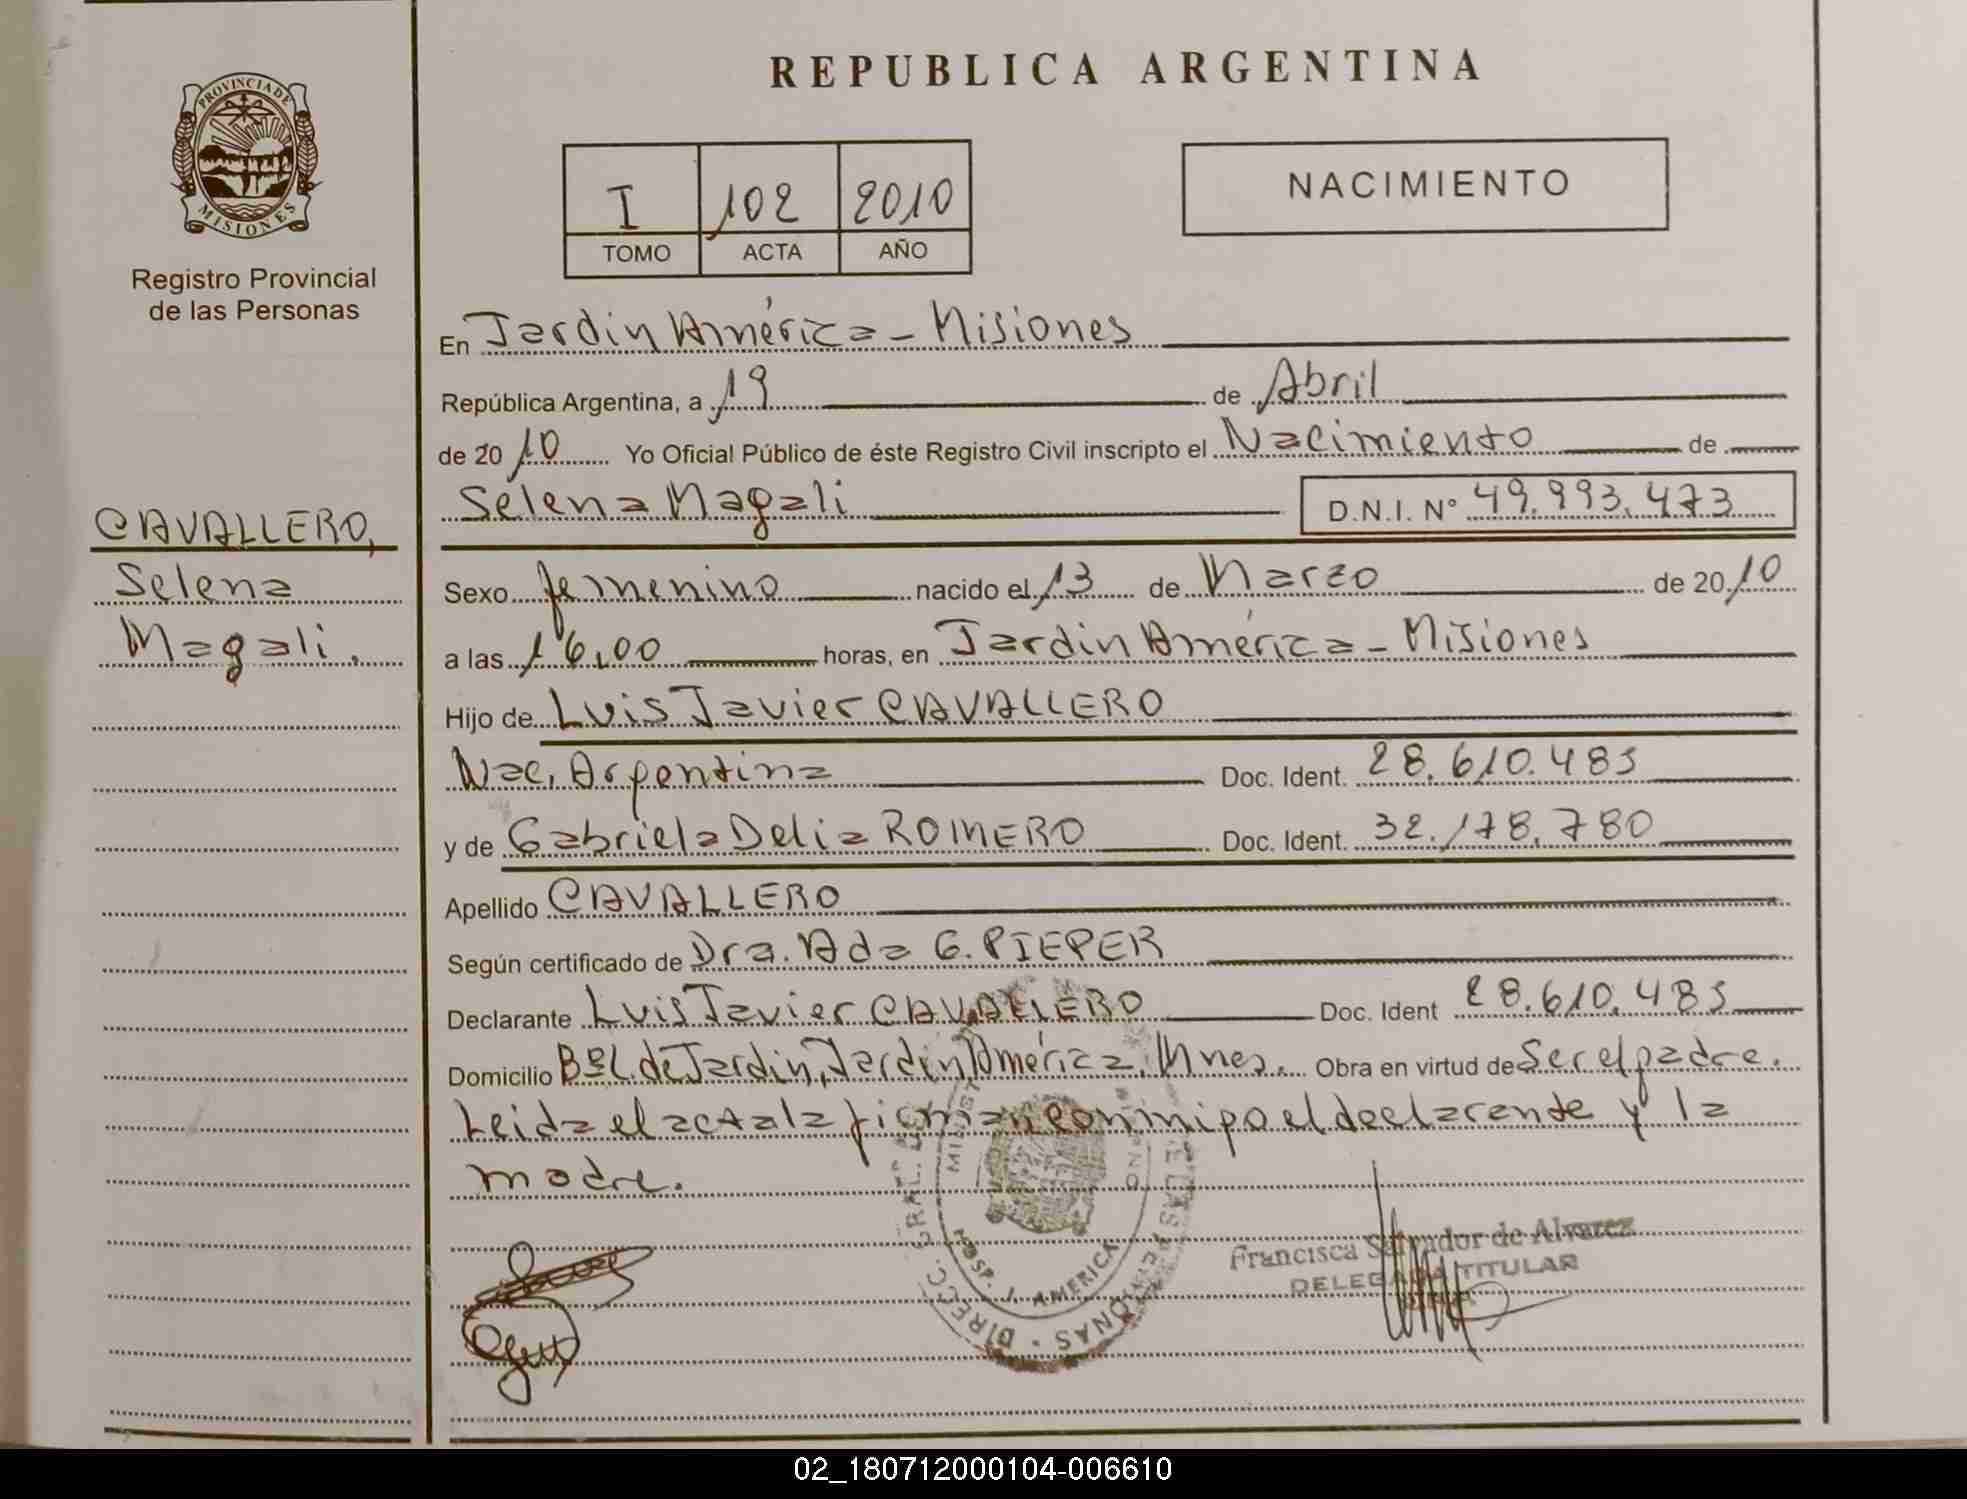 PROVINCIA DE
MISIONES
Registro Provincial
de las Personas
CAVALLERO,
Selena
Magali.
REPUBLICA ARGENTINA
I 102 2010
TOMO ACTA AÑO
NACIMIENTO
En Jardin América - Misiones
República Argentina, a 19 de Abril
de 2010 Yo Oficial Público de éste Registro Civil inscripto el Nacimiento de
Selena Magali D.N.I. N° 49.993.473
Sexo femenino nacido el 13 de Marzo de 2010
a las 16,00 horas, en Jardin América - Misiones
Hijo de Luis Javier CAVALLERO
Nac. Argentina Doc. Ident. 28.610.485
y de Gabriela Delia ROMERO Doc. Ident. 32.178.780
Apellido CAVALLERO
Según certificado de Dra. Ada G. PIEPER
Declarante Luis Javier CAVALLERO Doc. Ident 28.610.485
Domicilio BºL. de Jardin, Jardin América, Mnes. Obra en virtud de Ser el padre.
Leida el acta la firman conmigo el declarante y la
madre.
Francisca Salvador de Alvarez
DELEGADA TITULAR
HOSP. J. AMERICA
02_180712000104-006610